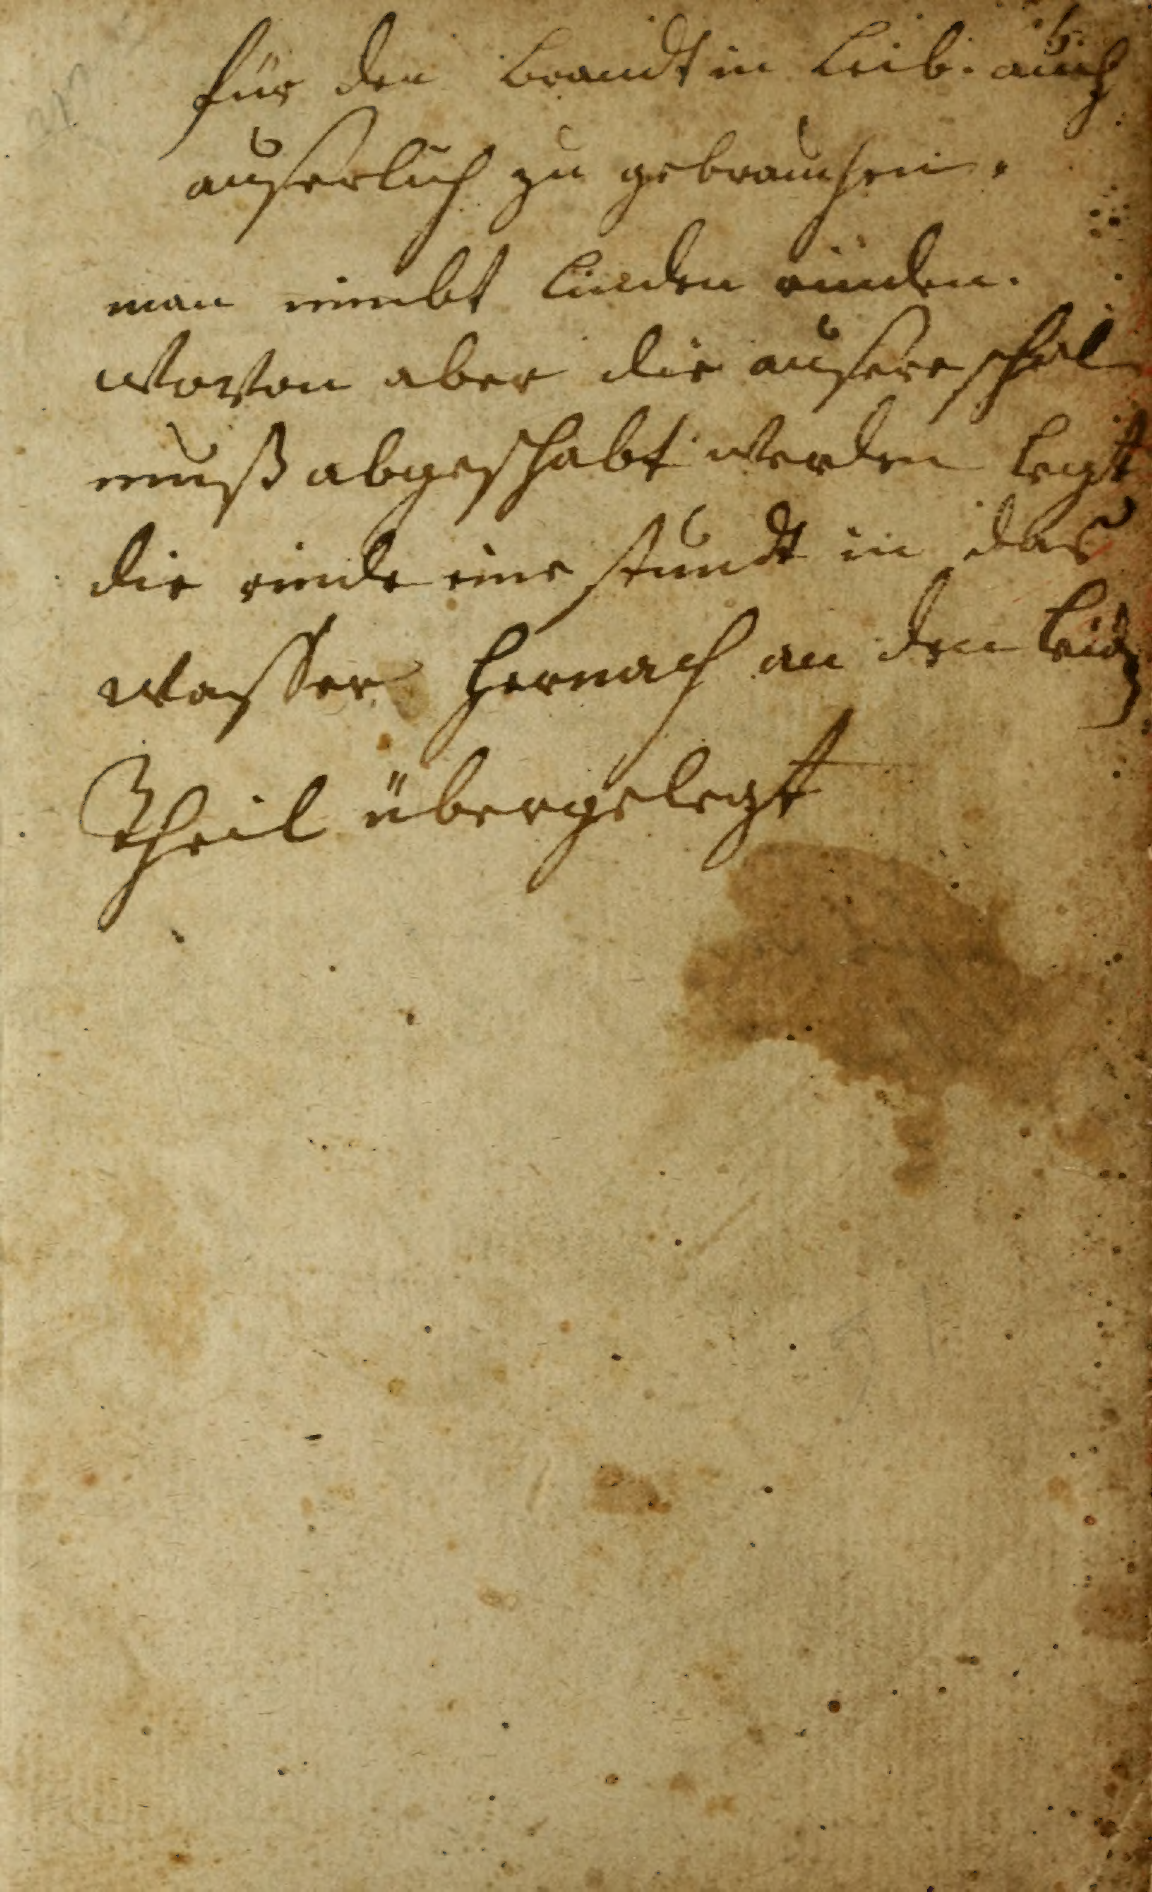 für den brandt in leib. auch
auserlich zu gebrauchen.
man nimbt linden rinden.
wovon aber die ausere schal
muß abgeschabt werden legt
die rinde eine stundt in das
wasser hernach an den
Theil übergelegt